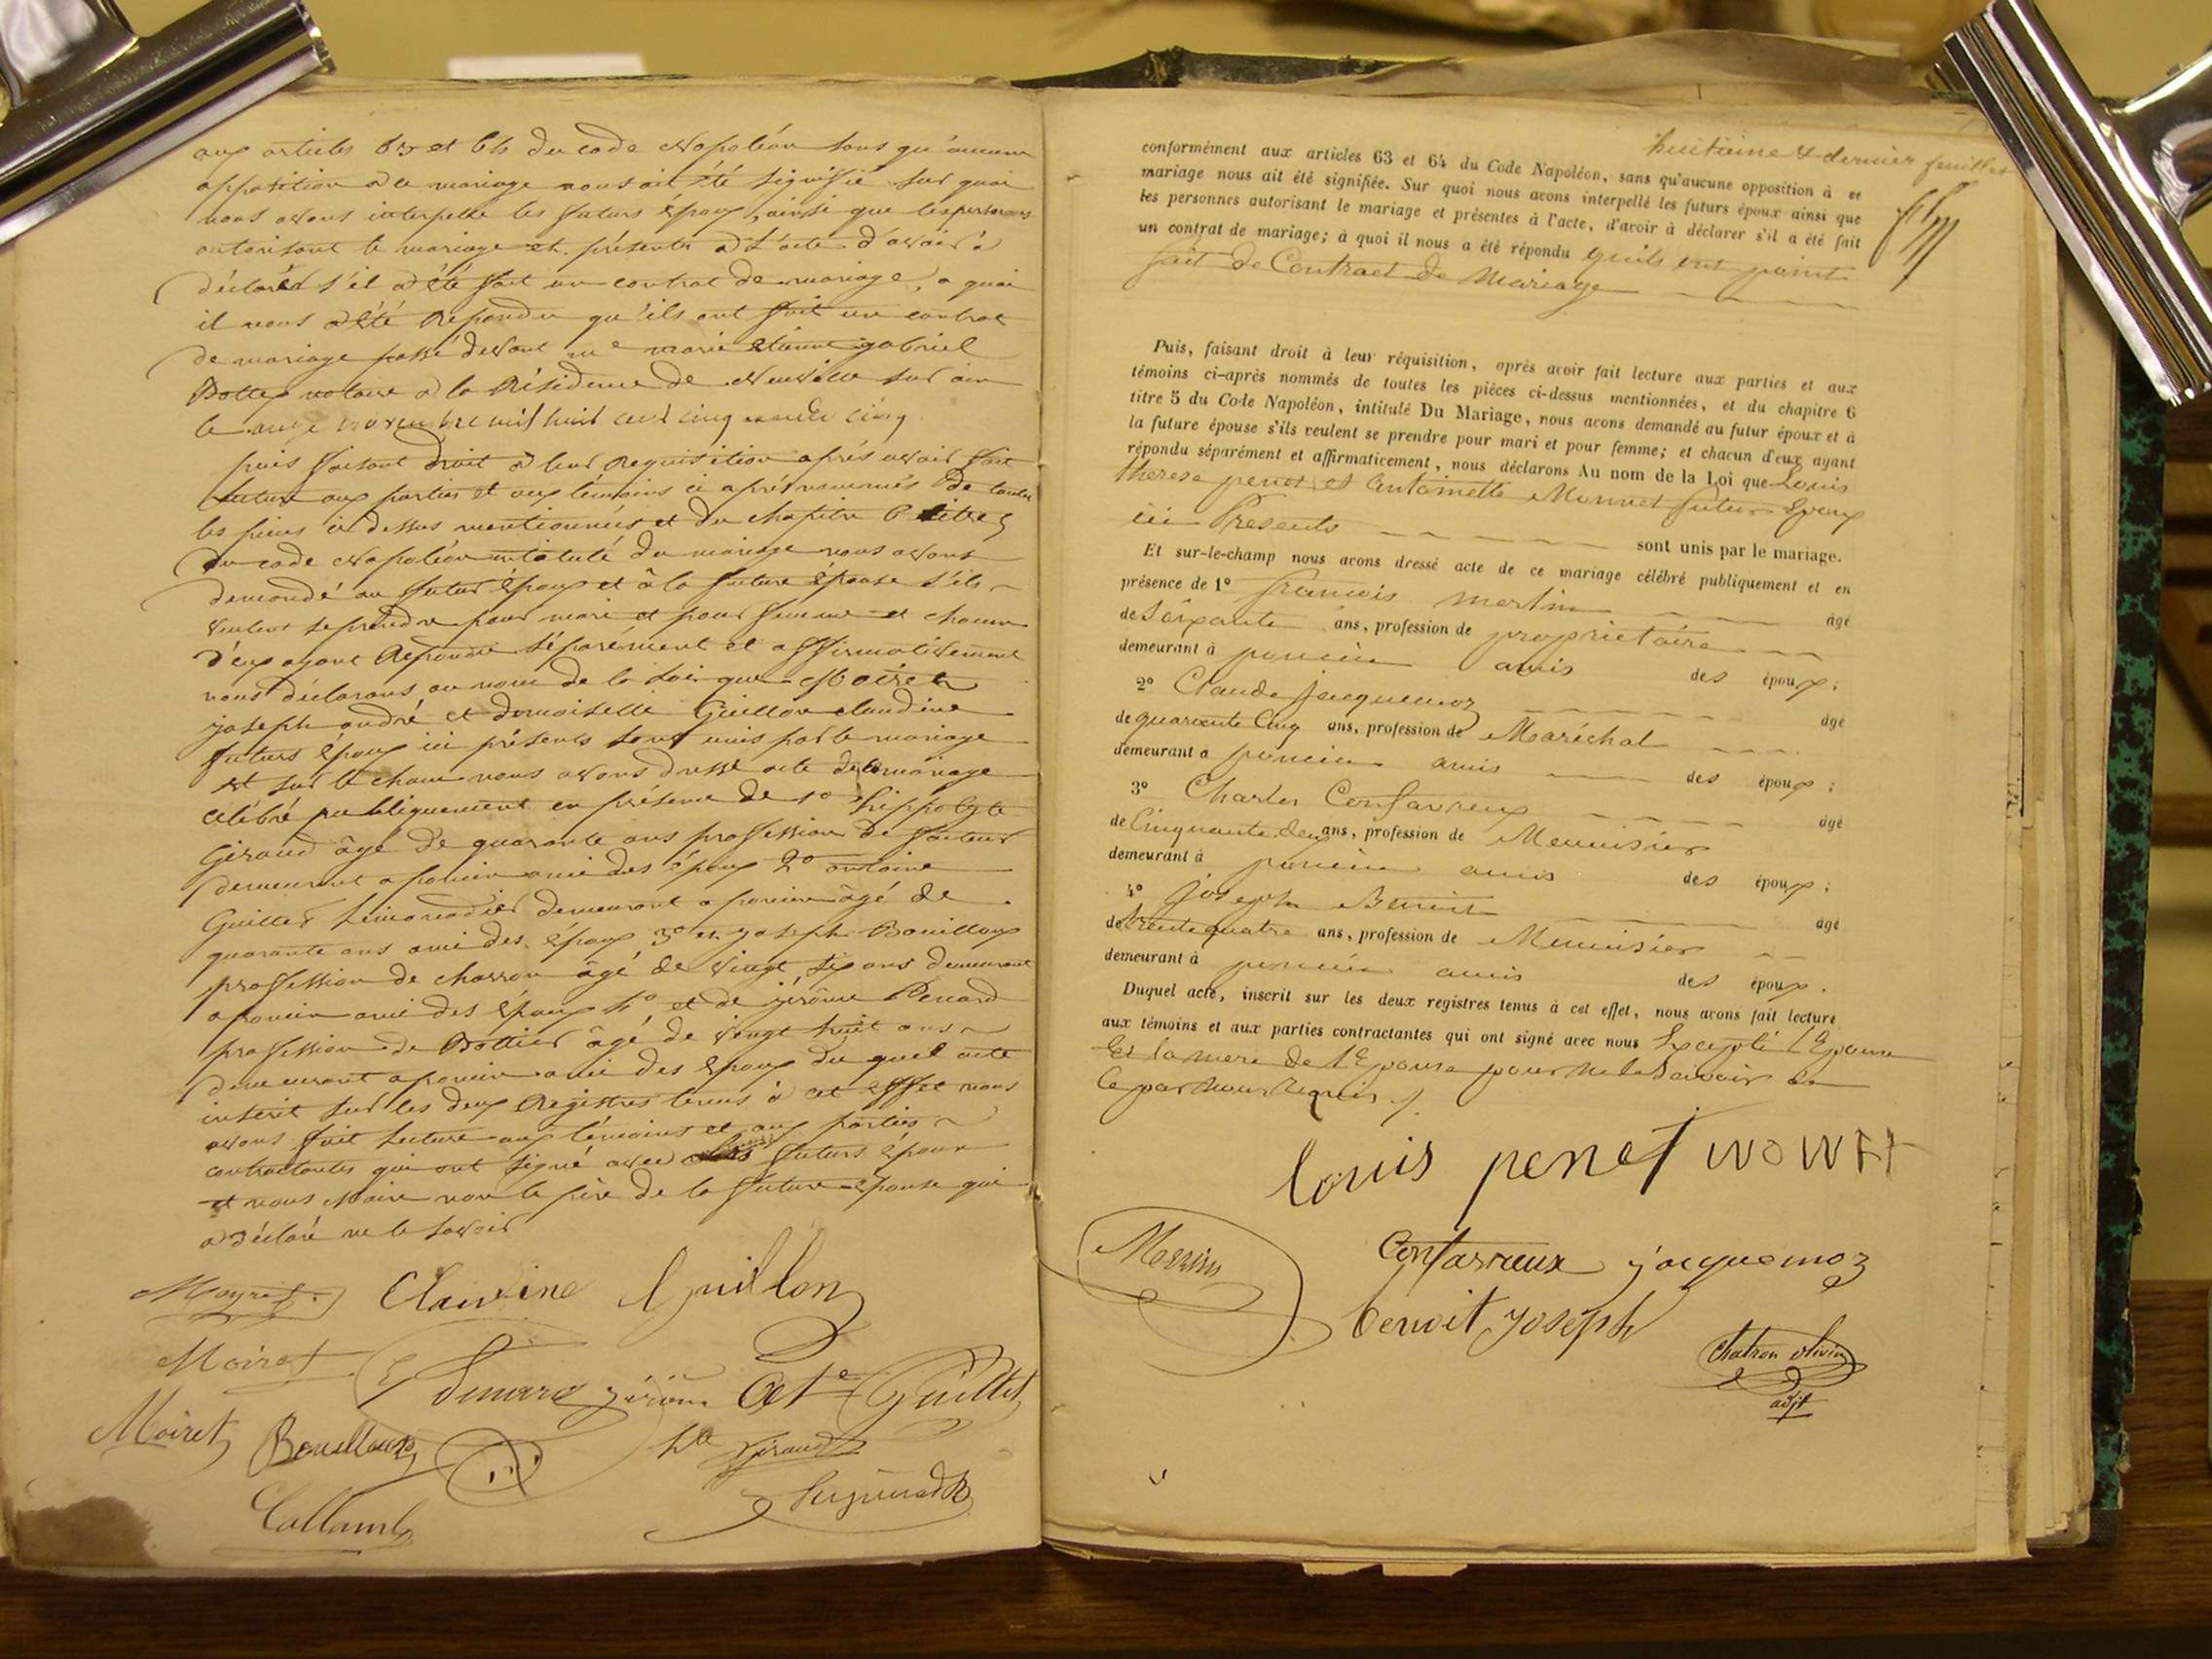 aux articles 63 et 64 du code Napoléon sans qu'aucune
opposition a ce mariage nous ait été signifié sur quoi
nous avons interpellé les futurs époux, ainsi que les personnes
autorisant le mariage et présentes a l'acte d'avoir à
déclarer s'il a été fait un contrat de mariage, a quoi
il nous a été répondu qu'ils ont fait un contrat
de mariage passé devant me marie étienne gabriel
Dottex notaire a la résidence de Neuville sur ain
le onze novembre mil huit cent cinquante cinq
puis faisant droit a leur requisition après avoir fait
lecture aux parties et aux témoins ci après nommés de toutes
les pièces ci dessus mentionnées et du chapitre 6 titre 5
du code Napoléon intitulé du mariage nous avons
demandé au futur époux et à la future épouse s'ils
veulent se prendre pour mari et pour femme et chacun
d'eux ayant répondu séparément et affirmativement
nous déclarons au nom de la loi que Moiret
joseph andré et demoiselle Guillon claudine
futurs époux ici présents sont unis par le mariage
et sur le champ nous avons dressé acte de ce mariage
célébré publiquement en présence de 1o hippolyte
Giraud âgé de quarante ans profession de facteur
demeurant a poncin ami des époux 2o antoine
Guillet Limonadier demeurant a poncin âgé de
quarante ans ami des époux 3o en joseph Bouilloux
profession de charron âgé de vingt six ans demeurant
a poncin ami des époux 4o et de jérôme Renard
profession de Bottier âgé de vingt huit ans
demeurant a poncin ami des époux du quel acte
inscrit sur les deux registres tenus à cet effet nous
avons fait lecture aux témoins et aux parties
contractantes qui ont signé avec les futurs époux
et nous Maire non le père de la future épouse qui
a déclaré ne le savoir
Claudine Guillon
Moiret
jérôme Ate Guillet
Moiret Bouilloux hte Giraud
Collomb
huitième & dernier feuillet
conformément aux articles 63 et 64 du Code Napoléon, sans qu'aucune opposition à ce
mariage nous ait été signifiée. Sur quoi nous avons interpellé les futurs époux ainsi que
les personnes autorisant le mariage et présentes à l'acte, d'avoir à déclarer s'il a été fait
un contrat de mariage; à quoi il nous a été répondu quils ont point
fait de Contract de Mariage
Puis, faisant droit à leur réquisition, après avoir fait lecture aux parties et aux
témoins ci-après nommés de toutes les pièces ci-dessus mentionnées, et du chapitre 6
titre 5 du Code Napoléon, intitulé Du Mariage, nous avons demandé au futur époux et à
la future épouse s'ils veulent se prendre pour mari et pour femme; et chacun d'eux ayant
répondu séparément et affirmativement, nous déclarons Au nom de la Loi que Louis
therese penet et Antoinette Monnet futur Epoux
ici Presents sont unis par le mariage.
Et sur-le-champ nous avons dressé acte de ce mariage célébré publiquement et en
présence de 1o francois mertin âgé
de Soixante ans, profession de propriétaire
demeurant à poncin amis des époux;
2o Claude jacquemoz âgé
de quarante Cinq ans, profession de Maréchal
demeurant a poncin amis des époux;
3o Charles Confavreux âgé
de Cinquante deux ans, profession de Menuisier
demeurant à poncin amis des époux;
4o joseph Benoit âgé
de trente quatre ans, profession de Menuisier
demeurant à poncin amis des époux.
Duquel acte, inscrit sur les deux registres tenus à cet effet, nous avons fait lecture
aux témoins et aux parties contractantes qui ont signé avec nous Excepté l'Epouse
Et la mere de l'Epouse pour ne le Savoir de
Ce par nous requis ./.
louis penet
Confavreux jacquemoz
benoit joseph
Chatron olivier
adjt